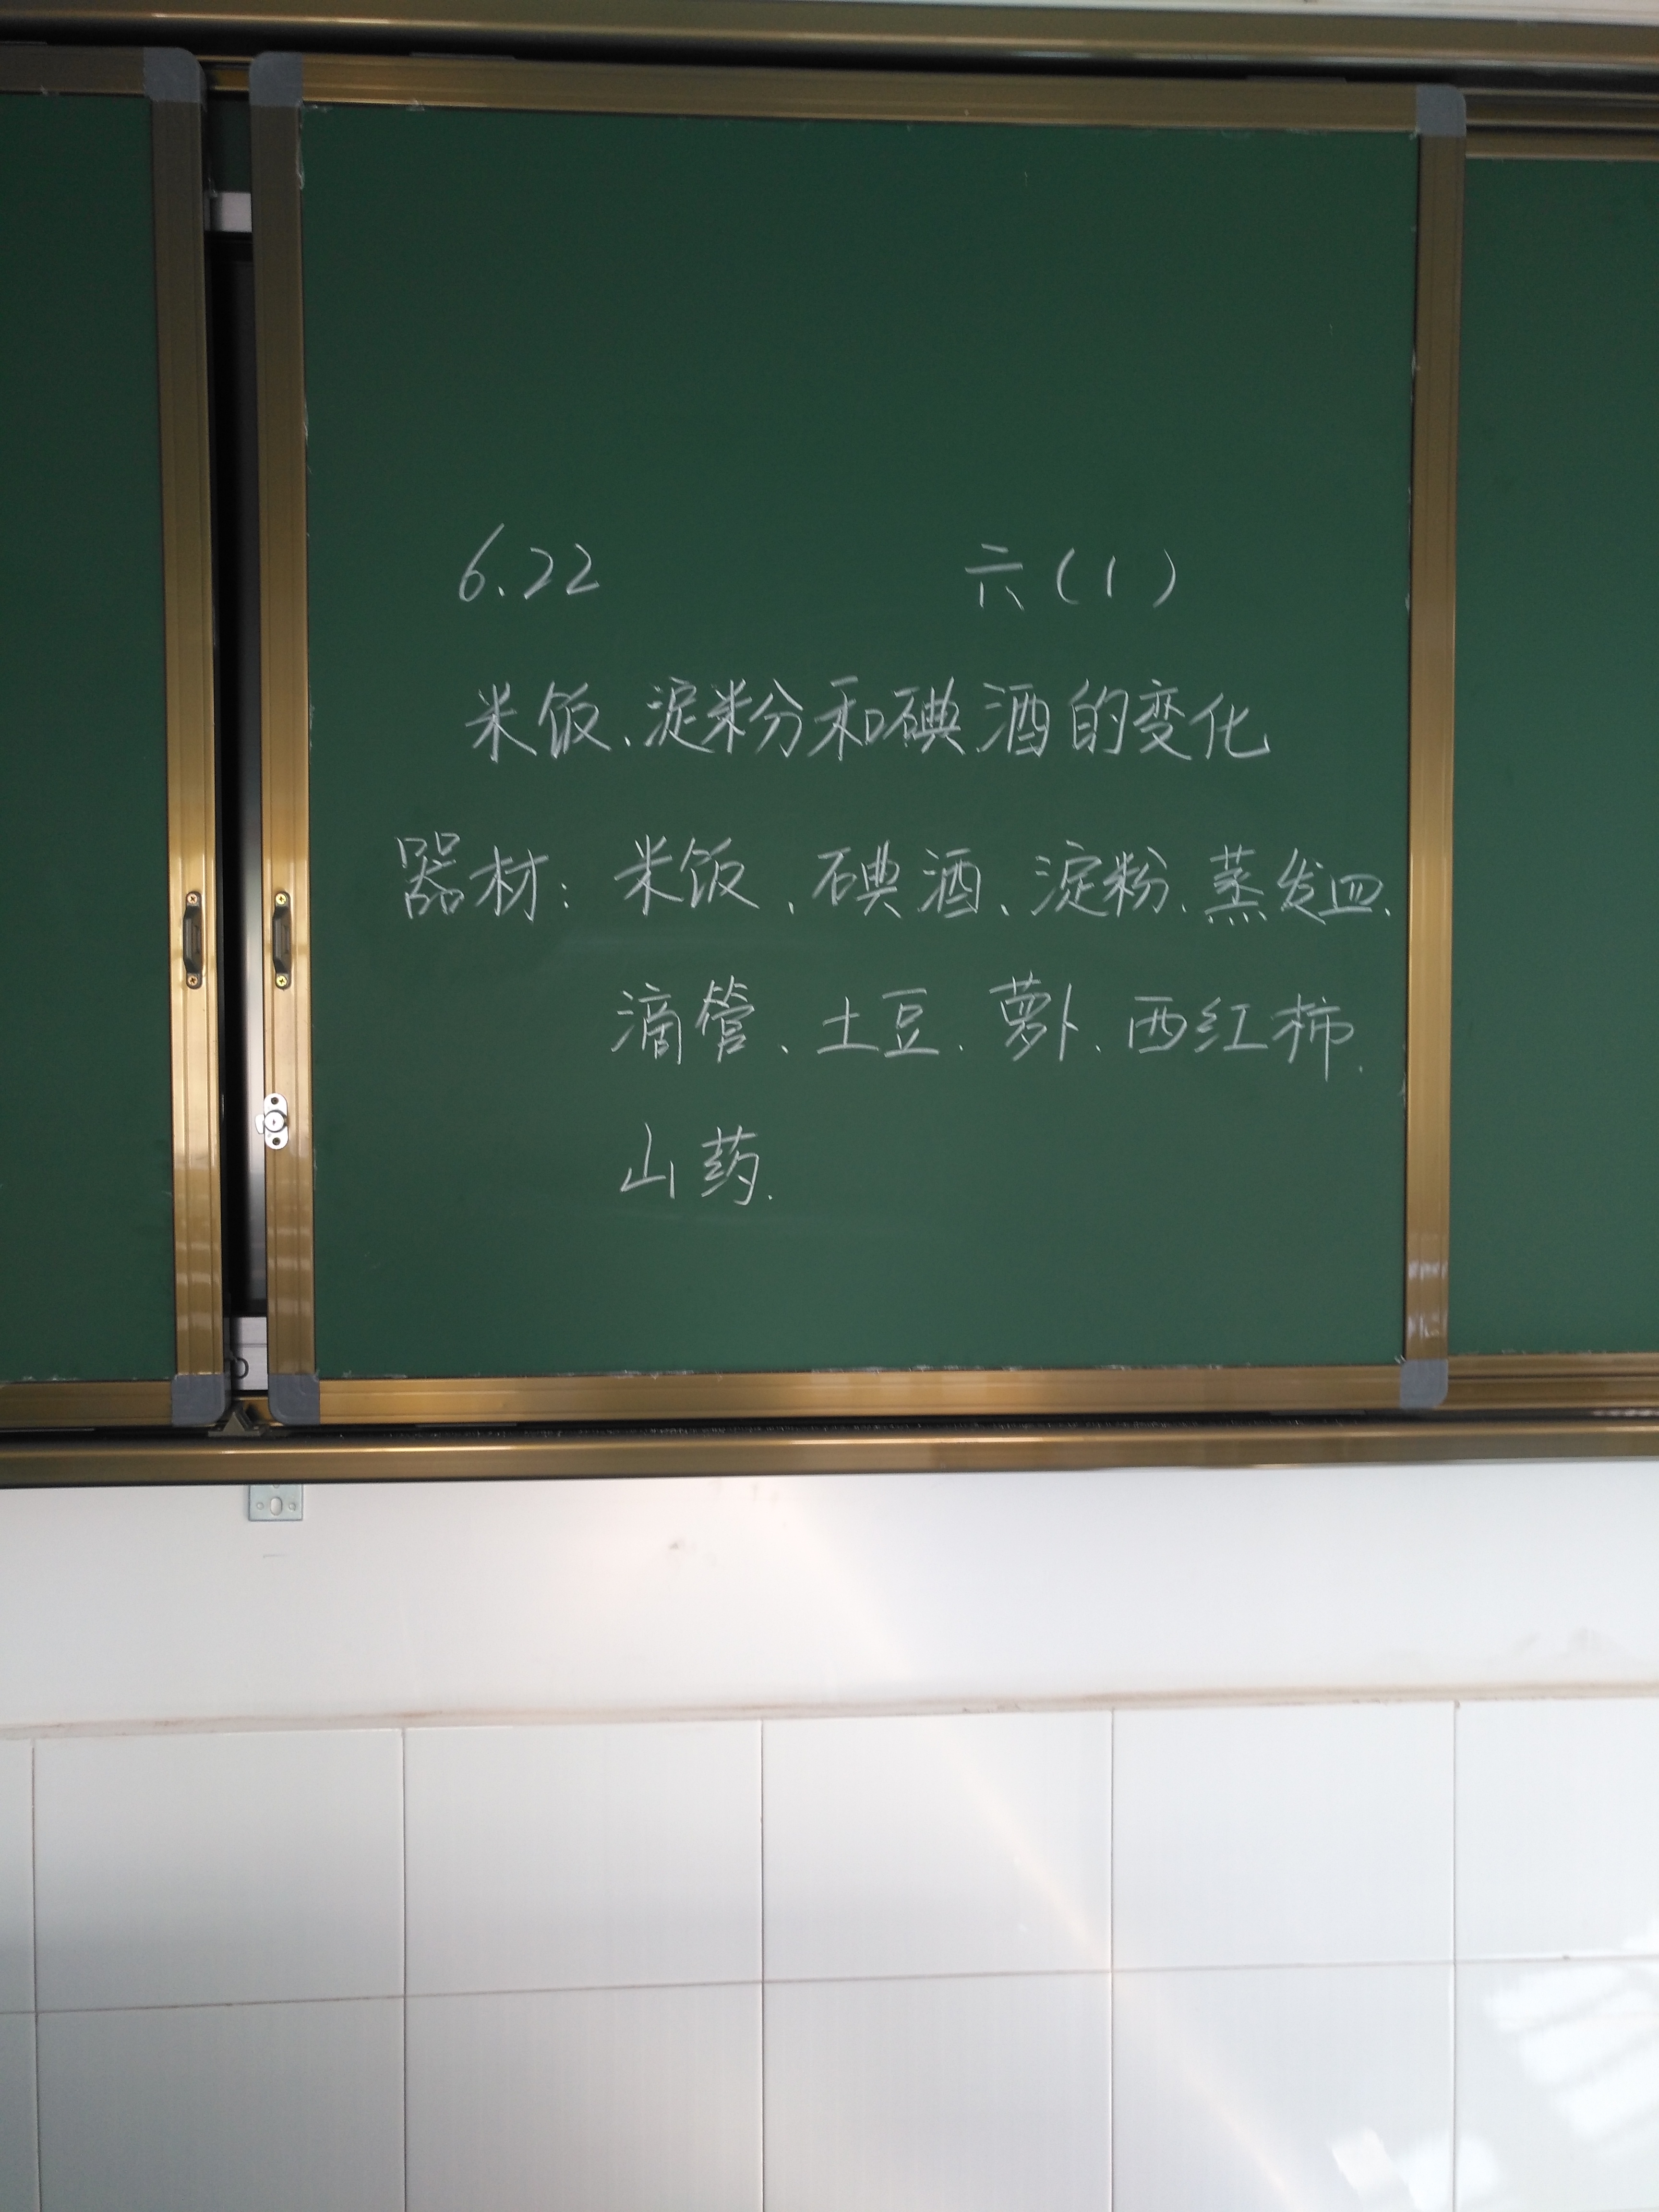 6.22 六(1)
米饭、淀粉和碘酒的变化
器材：米饭、碘酒、淀粉、蒸发皿、
滴管、土豆、萝卜、西红柿、
山药.